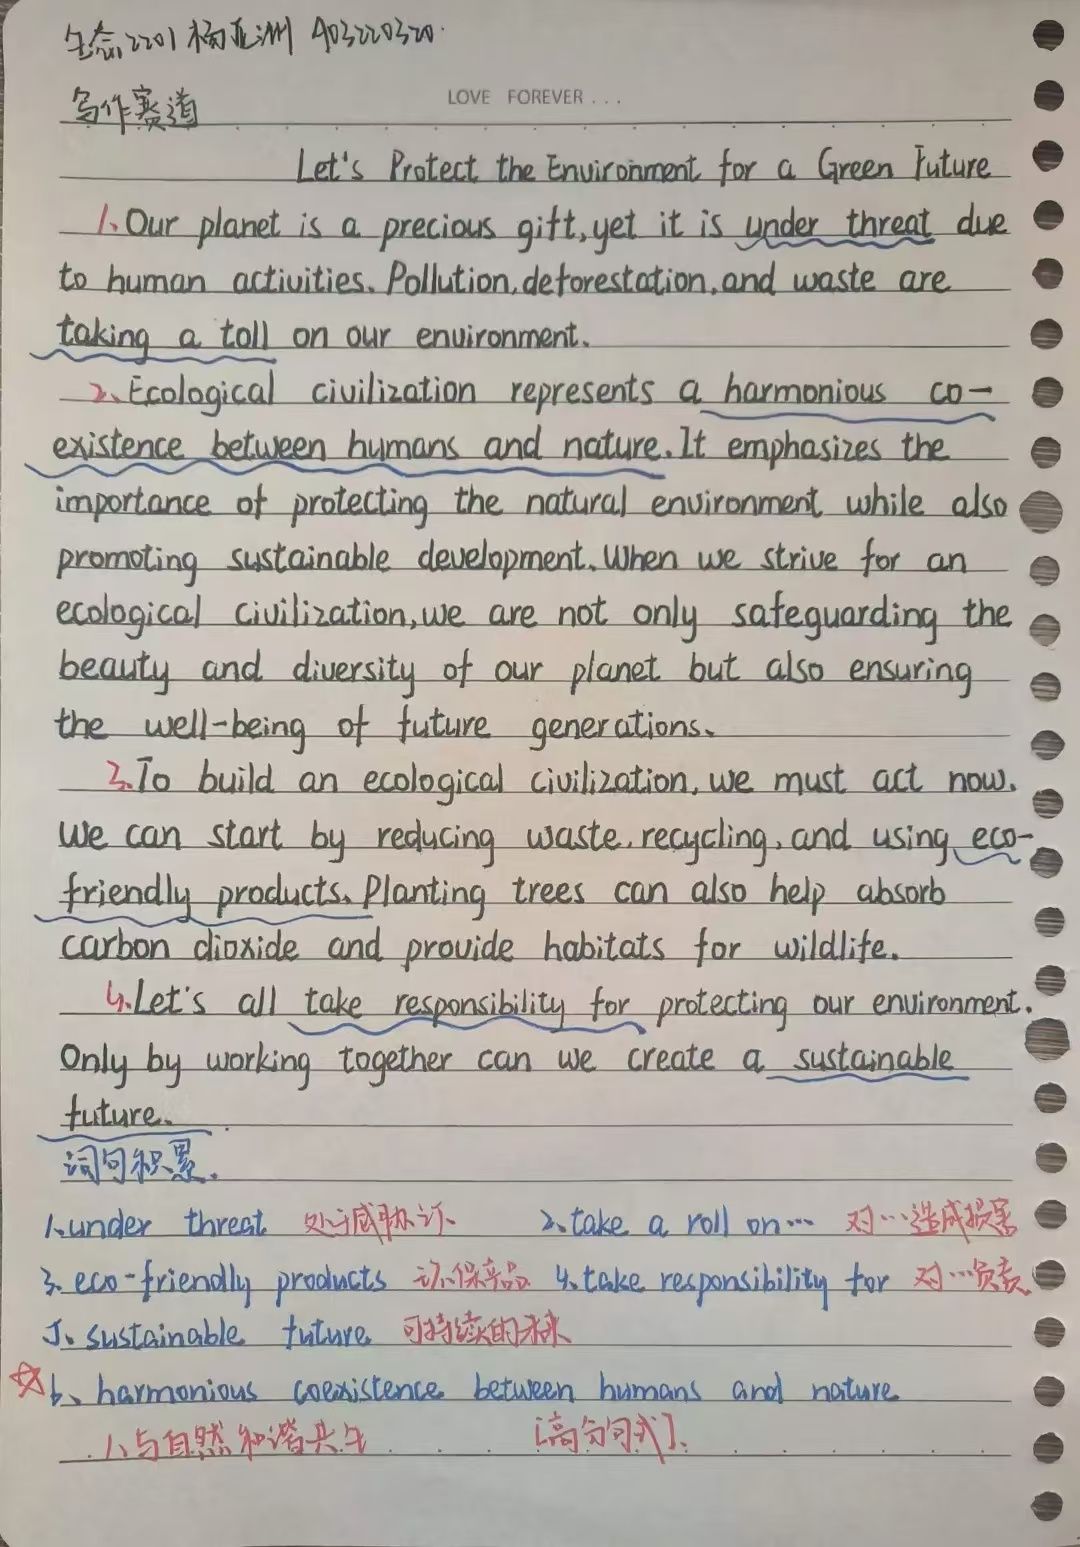 生态2201 杨亚洲 A03220320.
写作赛道
LOVE FOREVER...
Let's Protect the Environment for a Green Future
1.Our planet is a precious gift, yet it is under threat due
to human activities. Pollution, deforestation, and waste are
taking a toll on our environment.
2、Ecological civilization represents a harmonious co-
existence between humans and nature. It emphasizes the
importance of protecting the natural environment while also
promoting sustainable development. When we strive for an
ecological civilization, we are not only safeguarding the
beauty and diversity of our planet but also ensuring
the well-being of future generations.
3.To build an ecological civilization, we must act now.
We can start by reducing waste, recycling, and using eco-
friendly products. Planting trees can also help absorb
carbon dioxide and provide habitats for wildlife.
4.Let's all take responsibility for protecting our environment.
Only by working together can we create a sustainable
future.
词句积累.
1、under threat 处于威胁、 2、take a roll on… 对…造成损害
3、eco-friendly products 环保产品 4、take responsibility for 对…负责
5、sustainable future 可持续的未来
☆6、harmonious coexistence between humans and nature
人与自然和谐共生 [高分句式].